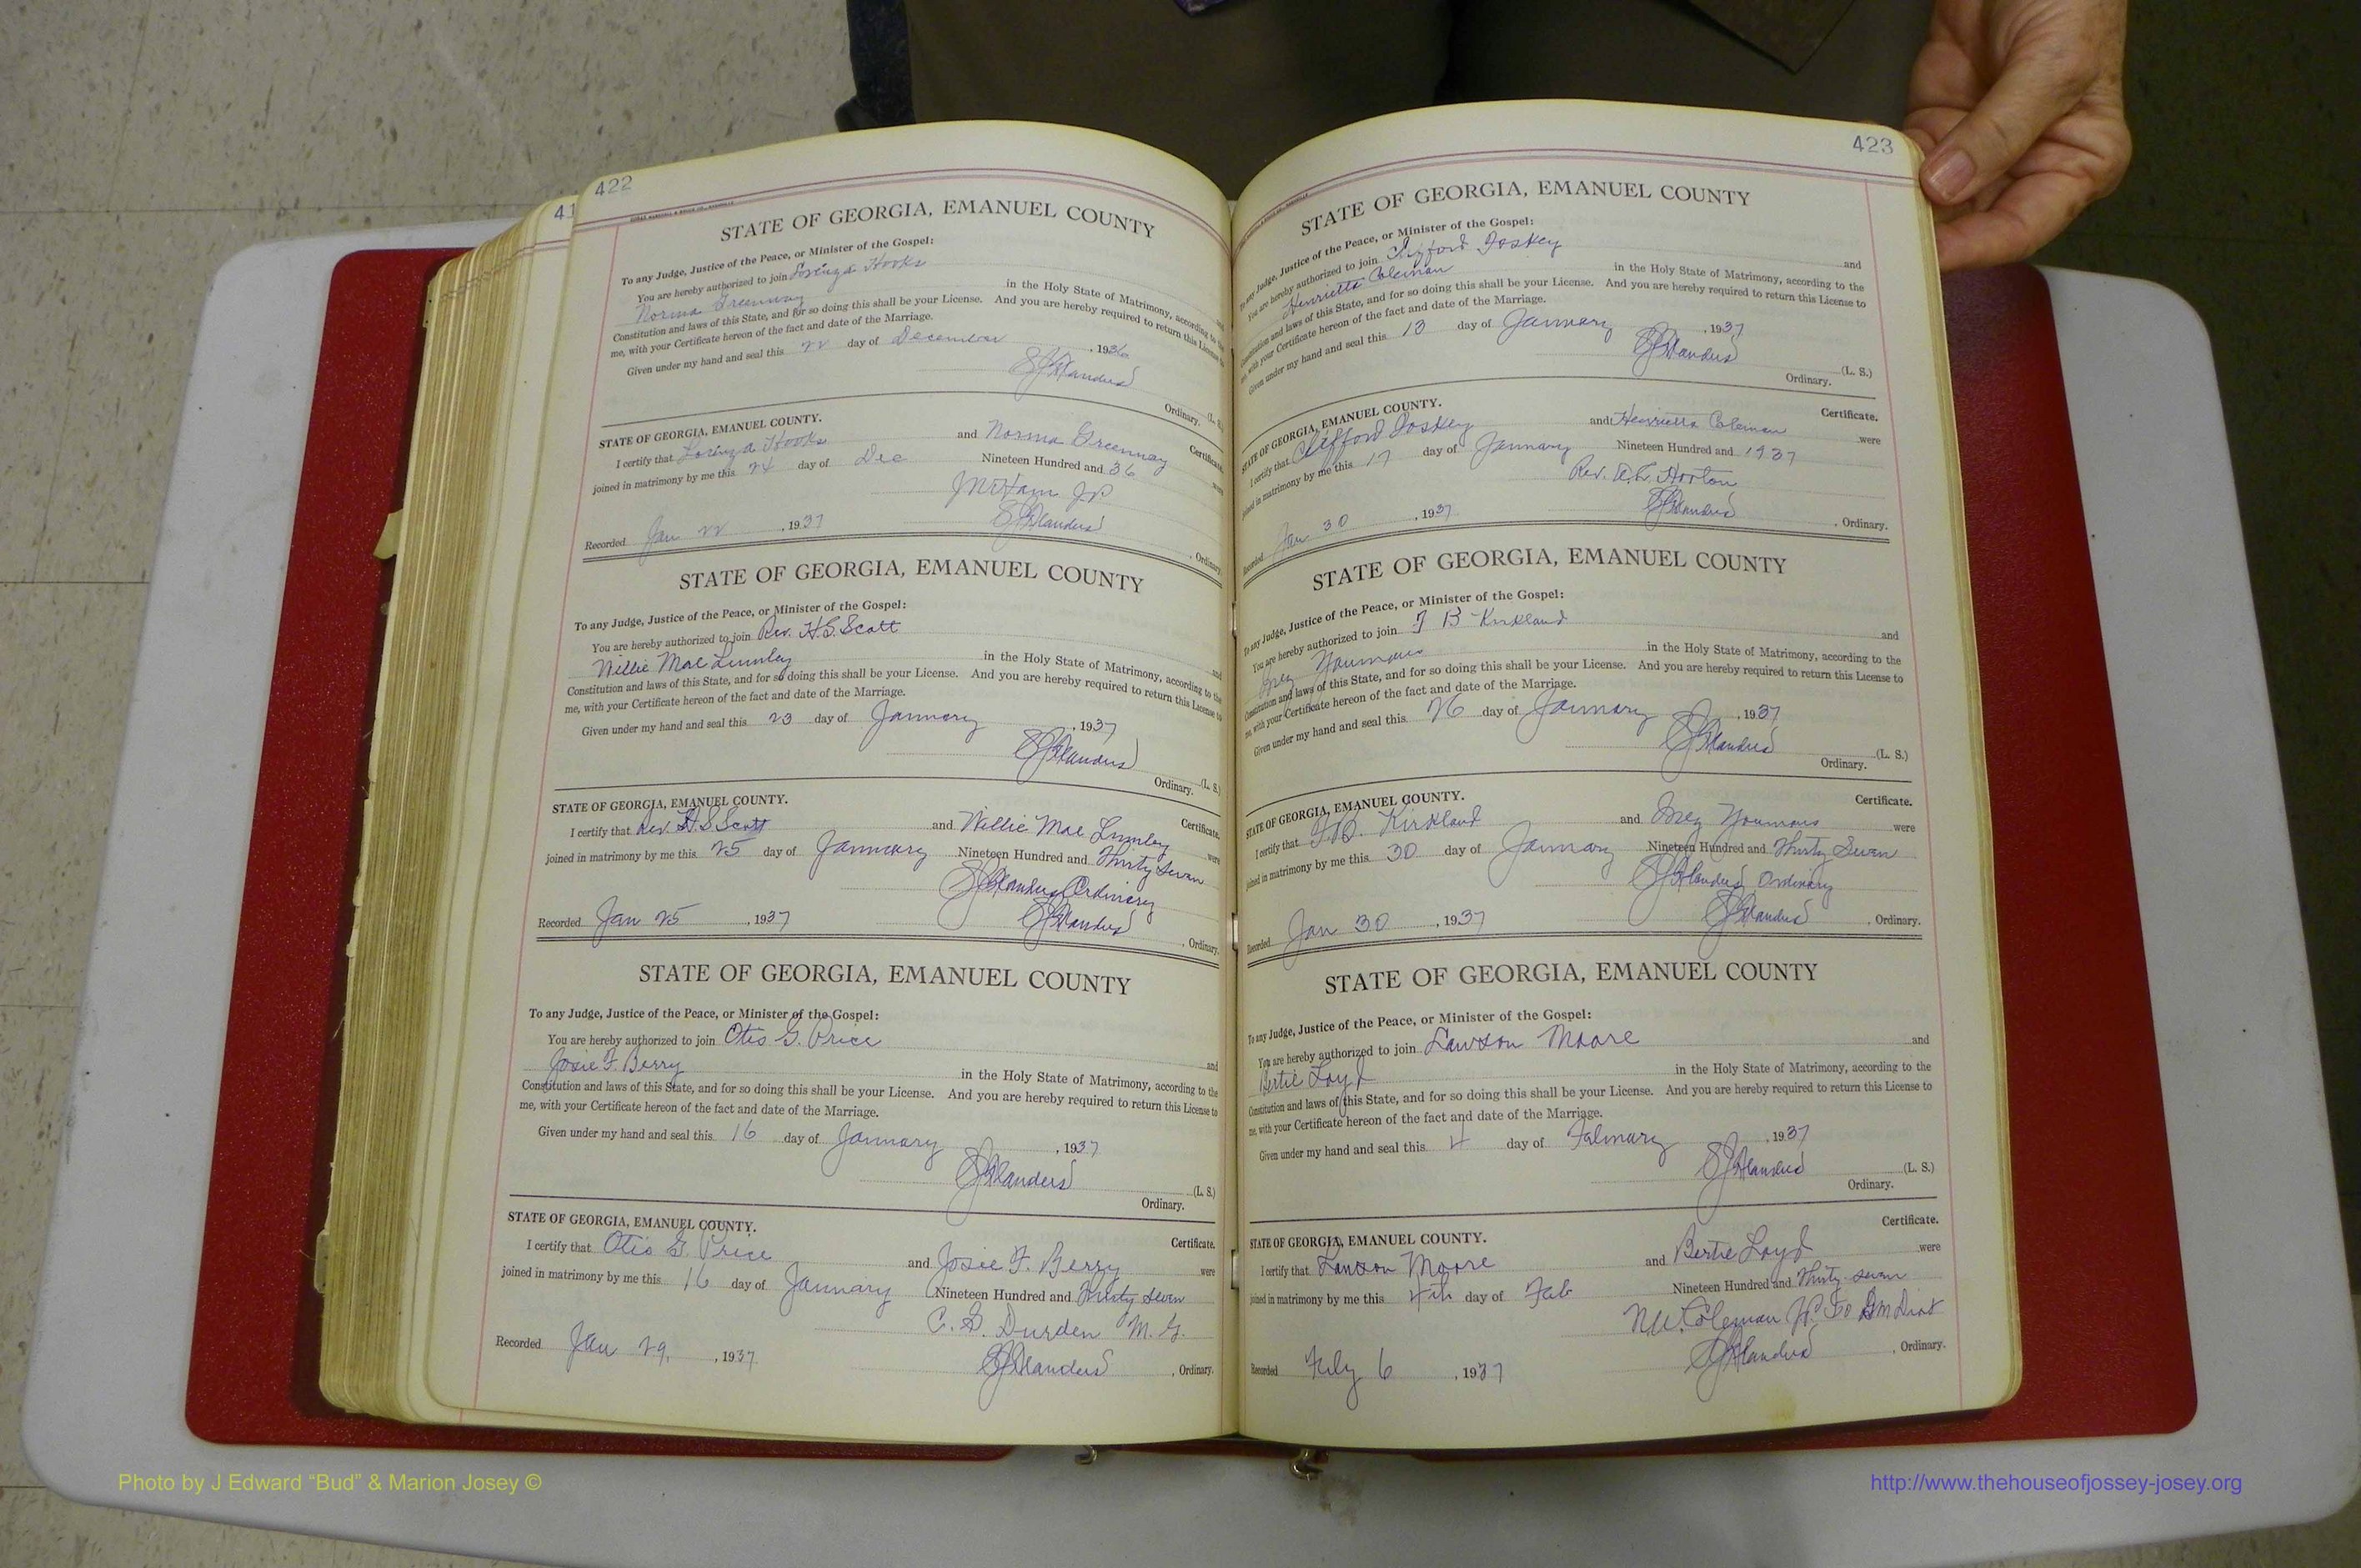 41
422
STATE OF GEORGIA, EMANUEL COUNTY
To any Judge, Justice of the Peace, or Minister of the Gospel:
You are hereby authorized to join Lorenza Hooks
Norma Greenway in the Holy State of Matrimony, according to the
Constitution and laws of this State, and for so doing this shall be your License. And you are hereby required to return this License to
me, with your Certificate hereon of the fact and date of the Marriage.
Given under my hand and seal this 22 day of December, 1936
Ordinary. (L. S.)
STATE OF GEORGIA, EMANUEL COUNTY. Certificate.
I certify that Lorenza Hooks and Norma Greenway were
joined in matrimony by me this 24 day of Dec Nineteen Hundred and 36
JP
Recorded Jan 22, 1937 , Ordinary.
STATE OF GEORGIA, EMANUEL COUNTY
To any Judge, Justice of the Peace, or Minister of the Gospel:
You are hereby authorized to join Rev. H.S. Scott and
Willie Mae Lumley in the Holy State of Matrimony, according to the
Constitution and laws of this State, and for so doing this shall be your License. And you are hereby required to return this License to
me, with your Certificate hereon of the fact and date of the Marriage.
Given under my hand and seal this 23 day of January, 1937
(L. S.)
Ordinary.
STATE OF GEORGIA, EMANUEL COUNTY. Certificate.
I certify that Rev. H.S. Scott and Willie Mae Lumley were
joined in matrimony by me this 25 day of January Nineteen Hundred and Thirty Seven
Ordinary
Recorded Jan 25, 1937 , Ordinary.
STATE OF GEORGIA, EMANUEL COUNTY
To any Judge, Justice of the Peace, or Minister of the Gospel:
You are hereby authorized to join Otis G. Price and
Josie F. Berry in the Holy State of Matrimony, according to the
Constitution and laws of this State, and for so doing this shall be your License. And you are hereby required to return this License to
me, with your Certificate hereon of the fact and date of the Marriage.
Given under my hand and seal this 16 day of January, 1937
(L. S.)
Ordinary.
STATE OF GEORGIA, EMANUEL COUNTY. Certificate.
I certify that Otis G. Price and Josie F. Berry were
joined in matrimony by me this 16 day of January Nineteen Hundred and Thirty Seven
C. G. Durden M. G.
Recorded Jan 29, 1937 , Ordinary.
423
STATE OF GEORGIA, EMANUEL COUNTY
To any Judge, Justice of the Peace, or Minister of the Gospel:
You are hereby authorized to join Clifford Joskey and
Henrietta Coleman in the Holy State of Matrimony, according to the
Constitution and laws of this State, and for so doing this shall be your License. And you are hereby required to return this License to
me, with your Certificate hereon of the fact and date of the Marriage.
Given under my hand and seal this 13 day of January, 1937
(L. S.)
Ordinary.
STATE OF GEORGIA, EMANUEL COUNTY. Certificate.
I certify that Clifford Joskey and Henrietta Coleman were
joined in matrimony by me this 17 day of January Nineteen Hundred and 1937
Rev. Horton
Recorded Jan 30, 1937 , Ordinary.
STATE OF GEORGIA, EMANUEL COUNTY
To any Judge, Justice of the Peace, or Minister of the Gospel:
You are hereby authorized to join J B Kirkland and
Inez Youmans in the Holy State of Matrimony, according to the
Constitution and laws of this State, and for so doing this shall be your License. And you are hereby required to return this License to
me, with your Certificate hereon of the fact and date of the Marriage.
Given under my hand and seal this 26 day of January, 1937
(L. S.)
Ordinary.
STATE OF GEORGIA, EMANUEL COUNTY. Certificate.
I certify that J.B. Kirkland and Inez Youmans were
joined in matrimony by me this 30 day of January Nineteen Hundred and Thirty Seven
Ordinary
Recorded Jan 30, 1937 , Ordinary.
STATE OF GEORGIA, EMANUEL COUNTY
To any Judge, Justice of the Peace, or Minister of the Gospel:
You are hereby authorized to join Lawson Moore and
Bertie Loyd in the Holy State of Matrimony, according to the
Constitution and laws of this State, and for so doing this shall be your License. And you are hereby required to return this License to
me, with your Certificate hereon of the fact and date of the Marriage.
Given under my hand and seal this 4 day of February, 1937
(L. S.)
Ordinary.
STATE OF GEORGIA, EMANUEL COUNTY. Certificate.
I certify that Lawson Moore and Bertie Loyd were
joined in matrimony by me this 4th day of Feb Nineteen Hundred and Thirty-seven
Coleman
Recorded Feby 6, 1937 , Ordinary.
Photo by J Edward “Bud” & Marion Josey ©
http://www.thehouseofjossey-josey.org